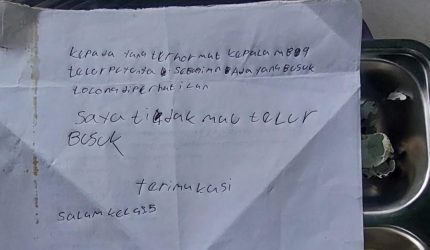 kepada yang terhormat kepala MBG
telornya di sebagian ada yang Busuk
tolong diperhatikan
saya tidak mau telur
Busuk
terimakasi
salam kelas 5